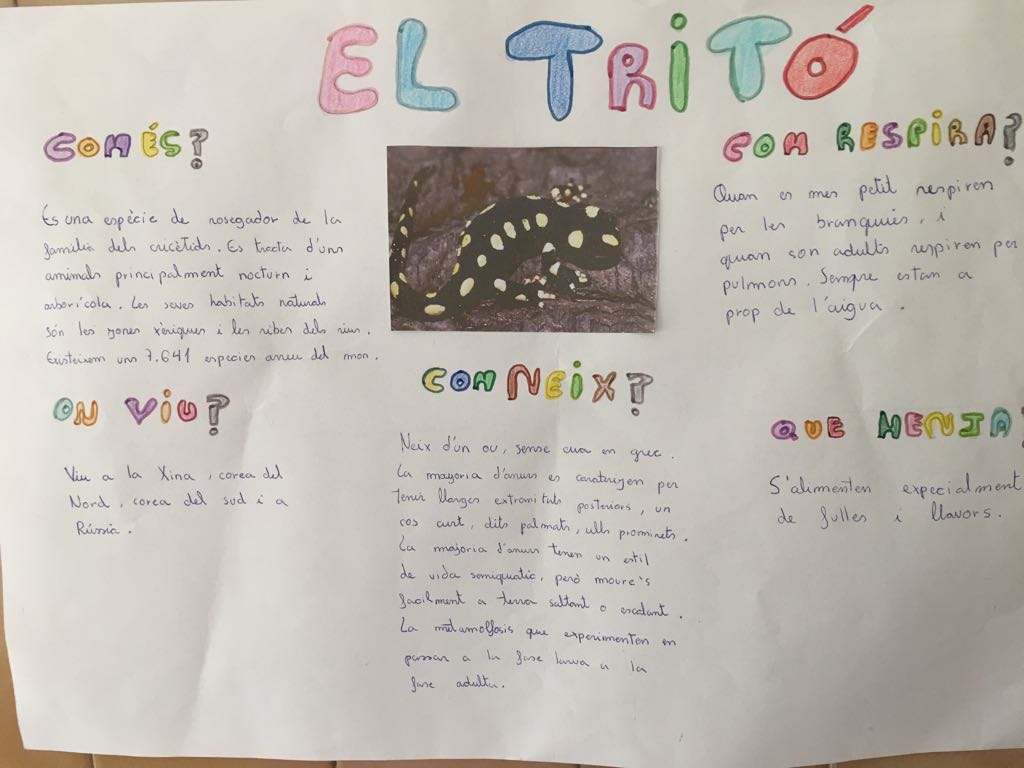 EL TRITÓ
COM ÉS?
És una espècie de rosegador de la
família dels cricètids. Es tracta d'uns
animals principalment nocturn i
arborícola. Les seves habitats naturals
són les zones xèriques i les ribes dels rius.
Existeixen uns 7.641 especies arreu del mon.
ON VIU?
Viu a la Xina, corea del
Nord, corea del sud i a
Rússia.
COM NEIX?
Neix d'un ou, sense cua en grec.
La mayoria d'anurs es caratrizen per
tenir llarges extramituts posteriors, un
cos curt, dits palmats, ulls prominets.
La majoria d'anurs tenen un estil
de vida semiquatic, però moure's
facilment a terra saltant o escalant.
La metamolfosis que experimenten en
passar a la fase larva a la
fase adulta.
COM RESPIRA?
Quan es mes petit respiren
per les branquies, i
quan son adults respiren per
pulmons. Sempre estan a
prop de l'aigua.
QUE MENJA?
S'alimenten expecialment
de fulles i llavors.